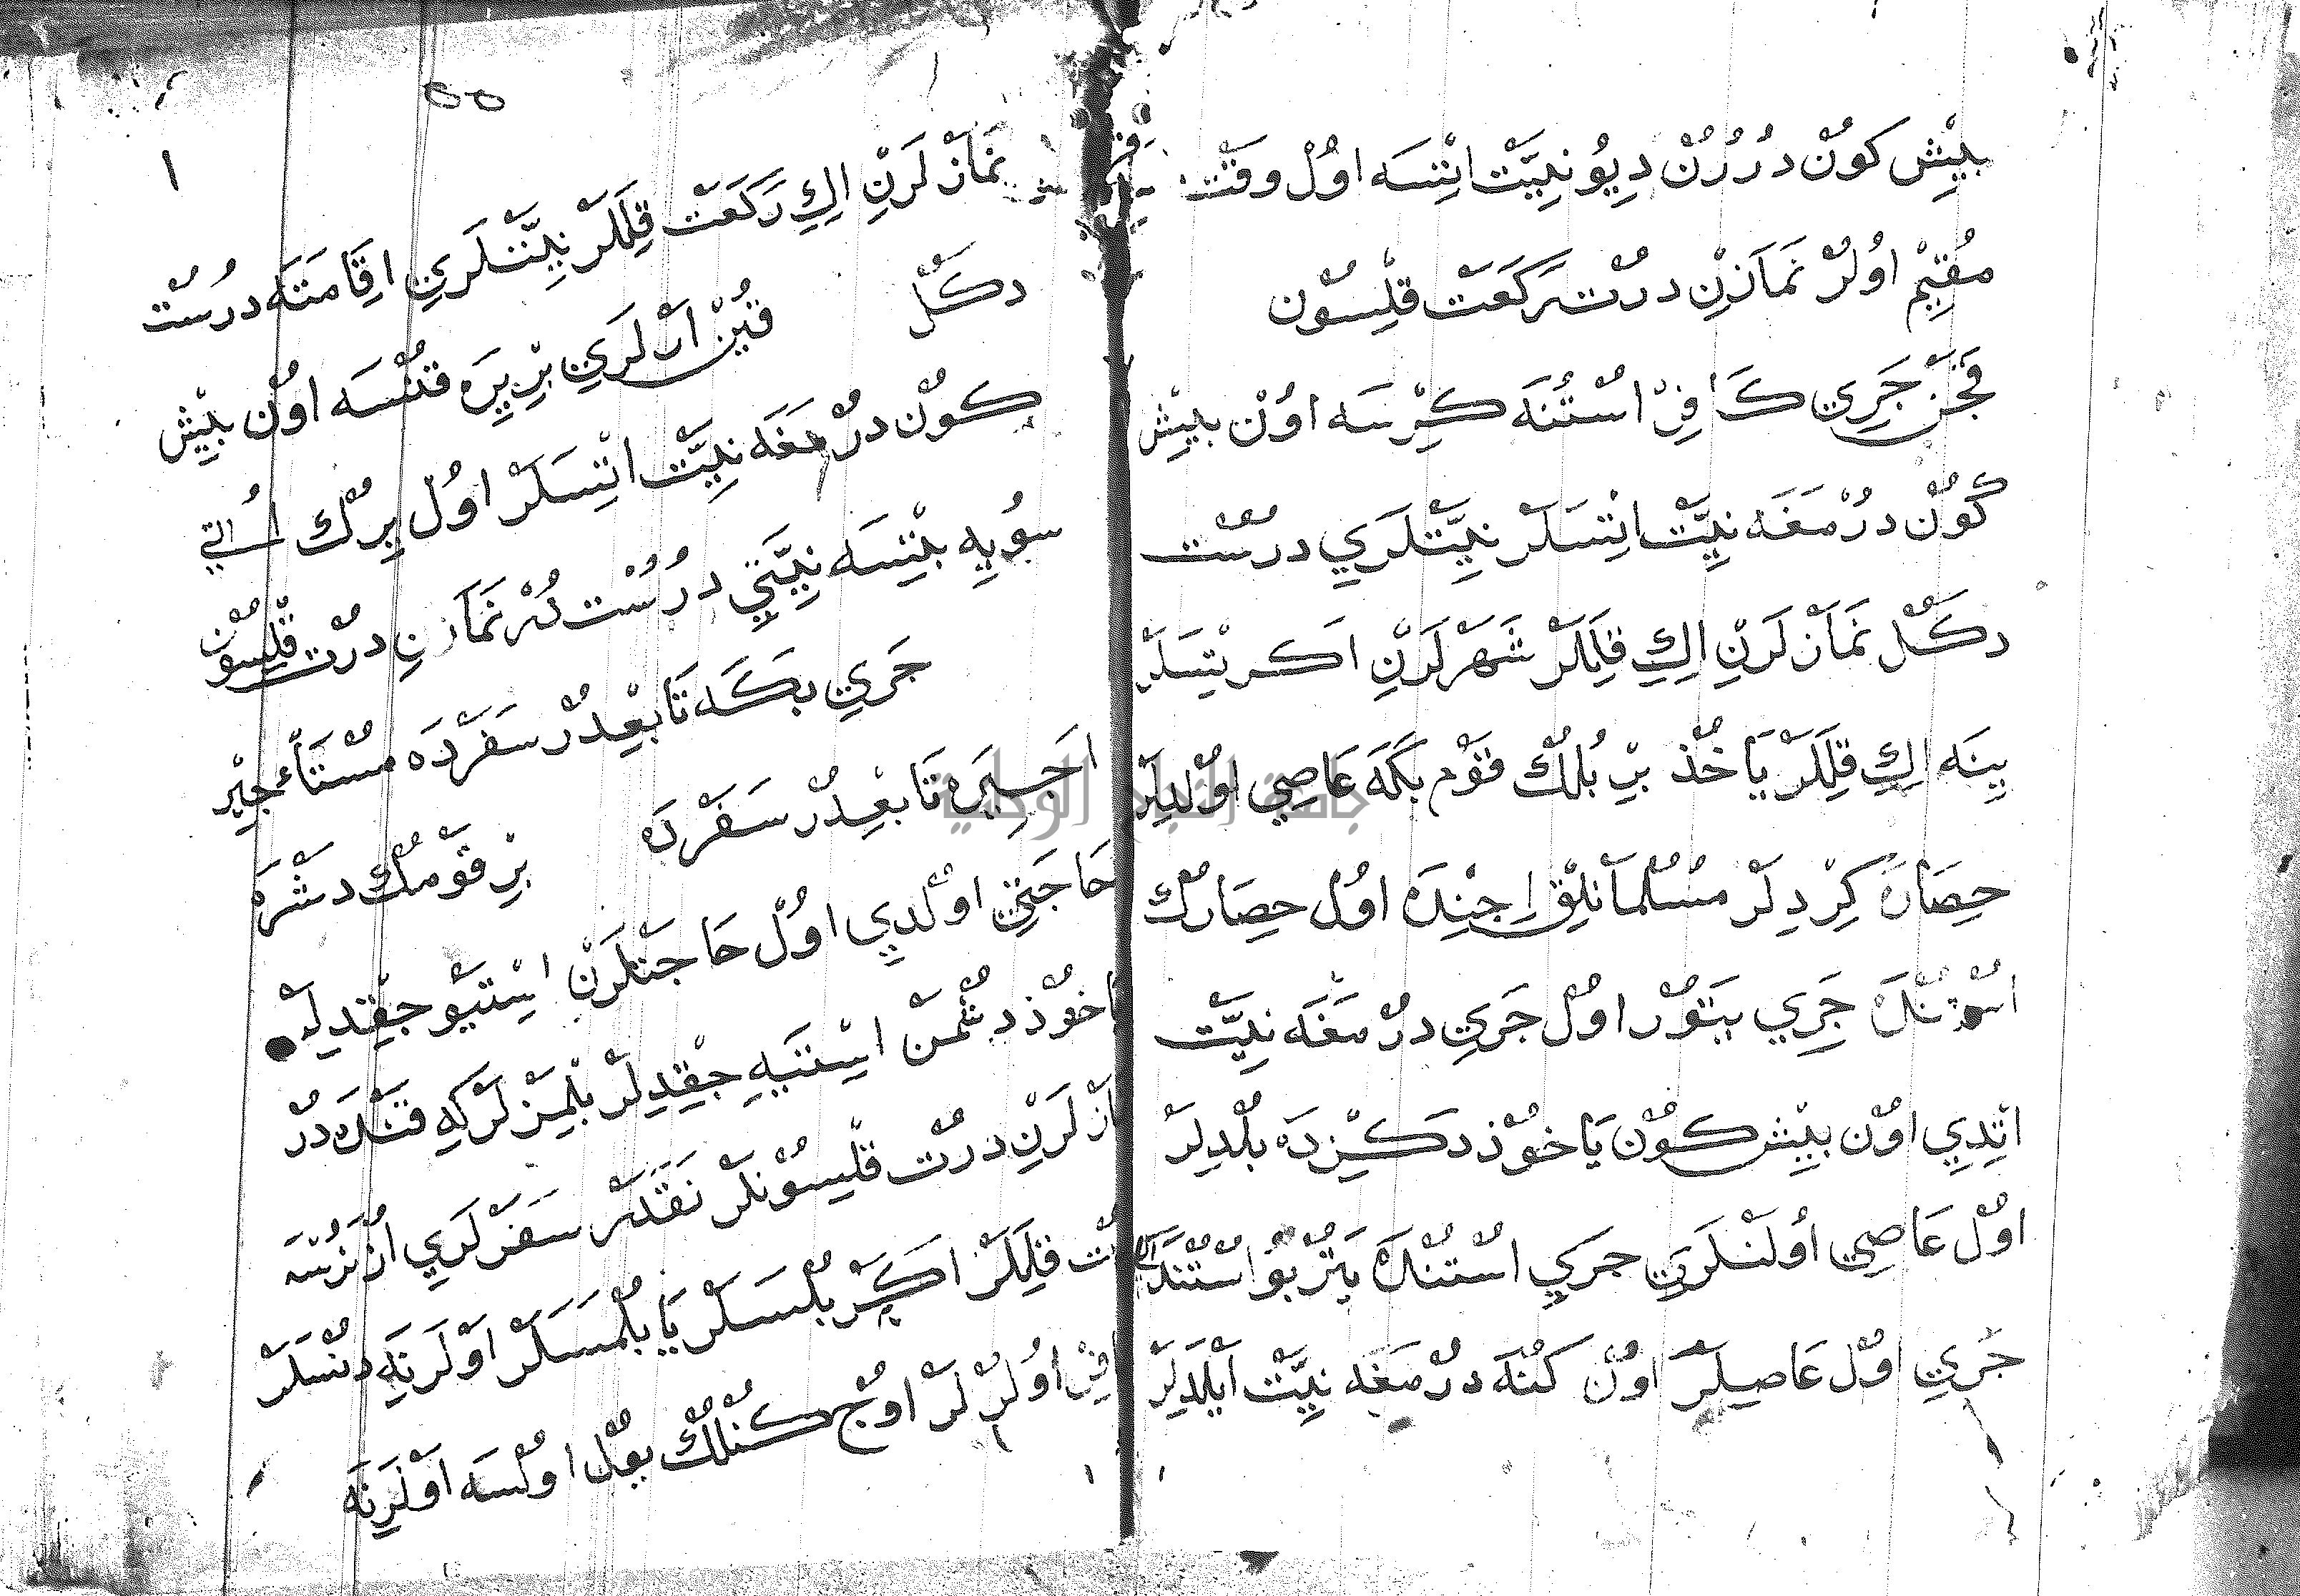 بيِشْ كوُنْ دُرُرُنْ دِيُو نِيَّتْ اتِسَه اوُلْ وقَتْ
مُقِيمْ اوُلُرْ نَمَازنِْ درْت ركَعَتْ قلِسوُن
قَچَنْ چَرِي كَافِرْ اسْتُنَه كِرْسَه اوُنْ بيِشْ
كوُنْ دُرْمَغَه نِيَّتْ اتْسَلَرْ نِيَّتلَرِي درسْت
دكَلْ نَمَازْلَرنِْ اِكِ قِلَلَرْ شَهَرْلَرنِْ اكَر يتسَلَرْ
يِنَه اِكِ قِلَلَرْ يَاخُذْ برِْ بُلُكْ قَوْم بَكَه عَاصِي اوُلدِلَرْ
حِصَارَه كِرْدِلَرْ مُسُلْمَانلِقْ اِچنِدَه اوُلْ حِصَارُكْ
اسْتُنْدَه چَرِي يَتوُرْ اوُلْ چَرِي دُرْمَغَه نِيَّتْ
اتِدِي اوُن بيِشْ كوُنْ يَا خوُذْ دكِزدَه بُلْدِلَرْ
اوُلْ عَاصِي اُولَنْلَرِي چَرِي اسْتُنْدَه يَتُرْ بُو اسْتُنْدَه
چَرِي اوُلْ عَاصِيلَر اوُنْ كُنَه دُرْمَغَه نِيَّتْ ايْلَدِلَرْ
٥٥
نمَازْلَرنِْ اِكِ رَكَعَتْ قِلَلَرْ نِيَّتلَرِي اقِامَتَه دُرُسْت
دكَلْ قيُنْ ارْلَرِي برِْ يِرَه قُنْسَه اوُنْ بيِشْ
كوُنْ دُرْمَغَه نِيَّتْ اتسَلَرْ اوُلْ يِرُكْ
سوُيِه يتسَه نِيَّتِي دُرُسْت دُرْ نمَازنِ درْت قلِسوُن
چَرِي بَكَه تَابعِدُرْ سَفَرْدَه مُسْتَأجِيْر
اجِيرَه تَابعِدُرْ سَفَرْدَه برِْ قَوْمُكْ دشْرَه
حَاجَتِي اوُلْدِي اوُلْ حَاجَتلَرنْ اسْتيو چقِدِلَر
يَا خوُذْ دشْمَنْ اسْتَيِه چقِدِلَرْ بلمِزلَرْ كِه قَنْدَه دُرْ
نمَازْلَرنِْ درْت قلِسوُنلَرْ نَقَدَرْ سَفَرْلَرِي اوُزنُرْسَه
درْت قلِلَرْ اكَرْ بُلْسَلَرْ يَا بُلْمَسَلَرْ اوْلَرنَه دنْسَلَرْ
اوُلُرْلَرْ اوُچْ كُنْلُكْ يوُلْ اوُلْسَه اوْلَرِنَه
جامعة النجاح الوطنية